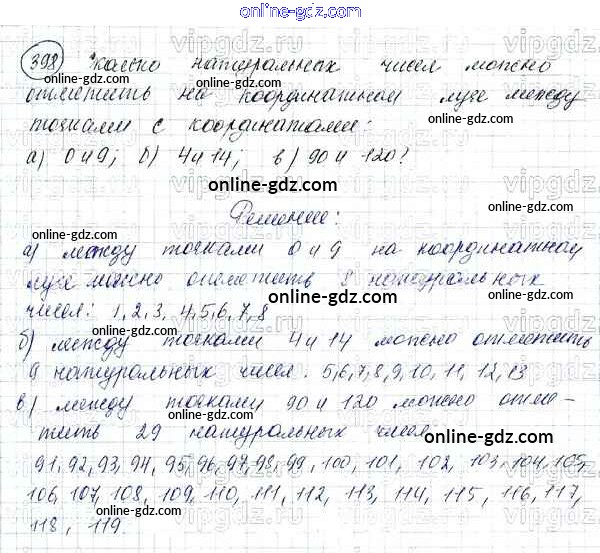 398 Сколько натуральных чисел можно
отметить на координатном луче между
точками с координатами:
а) 0 и 9; б) 4 и 14; в) 90 и 120?
Решение:
а) между точками 0 и 9 на координатном
луче можно отметить 8 натуральных
чисел: 1, 2, 3, 4, 5, 6, 7, 8
б) между точками 4 и 14 можно отметить
9 натуральных чисел: 5, 6, 7, 8, 9, 10, 11, 12, 13
в) между точками 90 и 120 можно отме-
тить 29 натуральных чисел:
91, 92, 93, 94, 95, 96, 97, 98, 99, 100, 101, 102, 103, 104, 105,
106, 107, 108, 109, 110, 111, 112, 113, 114, 115, 116, 117,
118, 119.
online-gdz.com
online-gdz.com
online-gdz.com
online-gdz.com
online-gdz.com
online-gdz.com
online-gdz.com
online-gdz.com
online-gdz.com
online-gdz.com
online-gdz.com
online-gdz.com
online-gdz.com